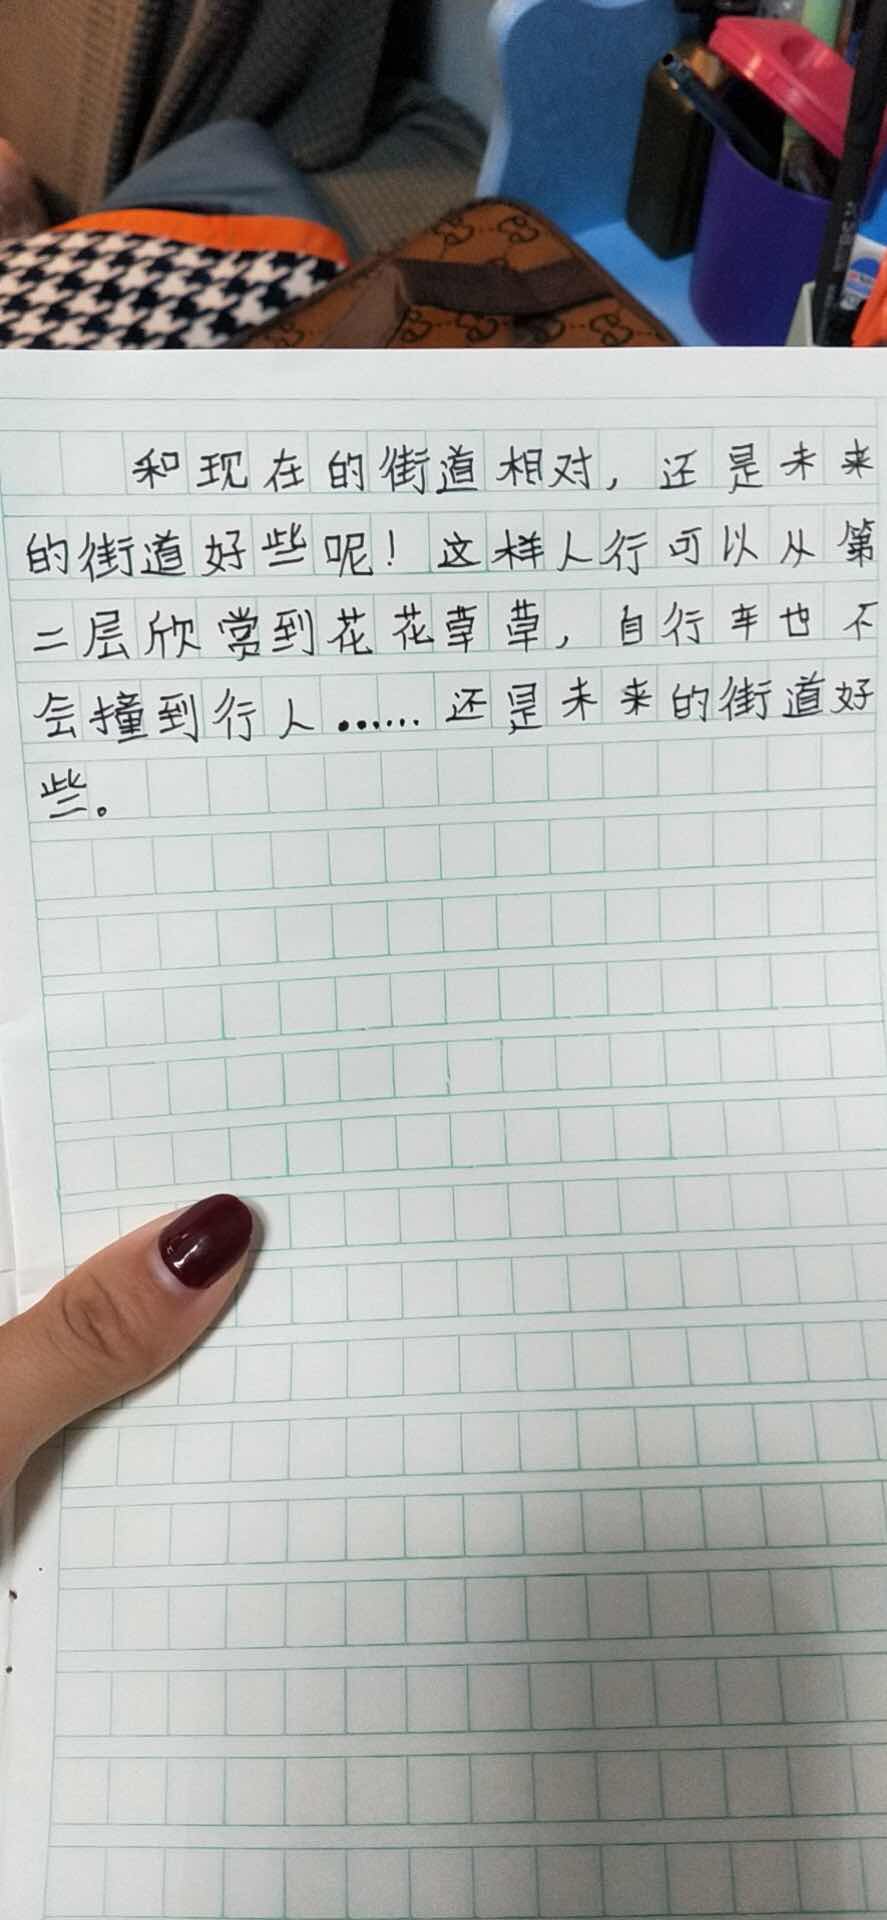 和现在的街道相对，还是未来
的街道好些呢！这样人行可以从第
二层欣赏到花花草草，自行车也不
会撞到行人……还是未来的街道好
些。